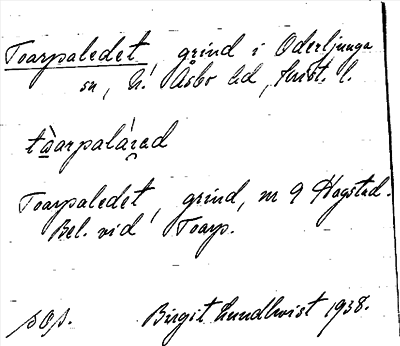 Toarpaledet, grind i Oderljunga
sn, N. Åsbo hd, Krist. l.
tòarpalárad
Toarpaledet, grind, nr 9 Hagstad.
Bel. vid Toarp.
pOp. Birgit Lundkvist 1938.